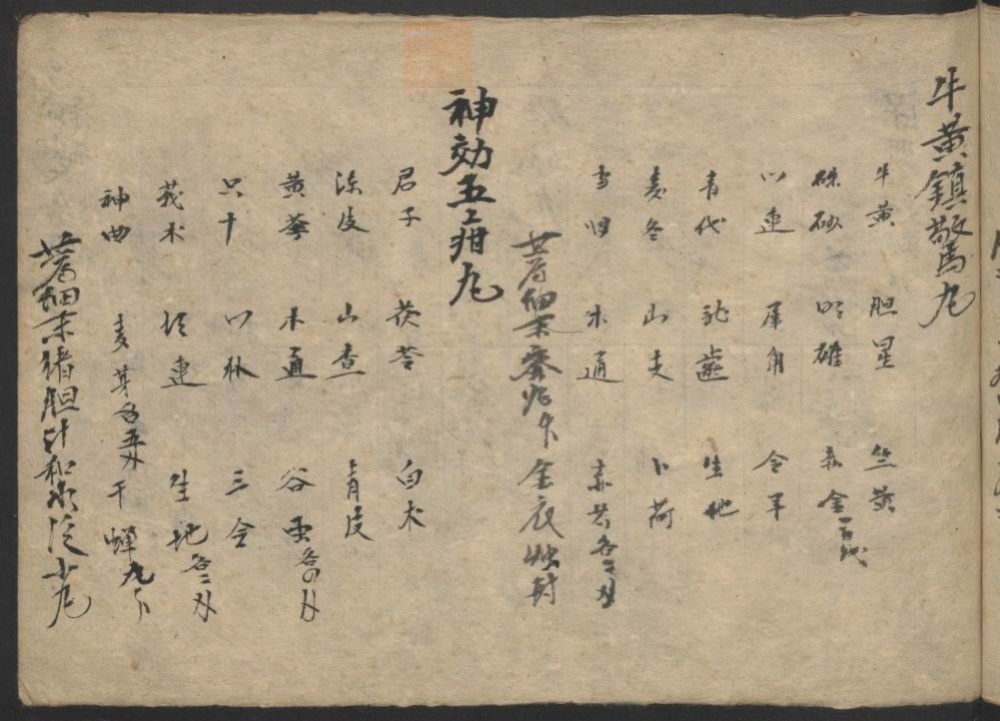 牛黄鎮驚丸
牛黄 胆星 竺黄
硃砂 明雄 赤金一百代
川連 犀角 全平
青代 龍齒 生地
麦冬 山支 卜荷
当归 木通 赤芍各二刄
共為細末蜜丸 金衣蜡封
神効五疳丸
君子 茯苓 白术
陈皮 山查 青皮
黄芩 木通 谷虫各四刄
只十 川朴 三仝
莪术 胡連 生地各二刄
神曲 麦芽各五刄 干蟬九个
共為細末猪胆汁和水泛小丸